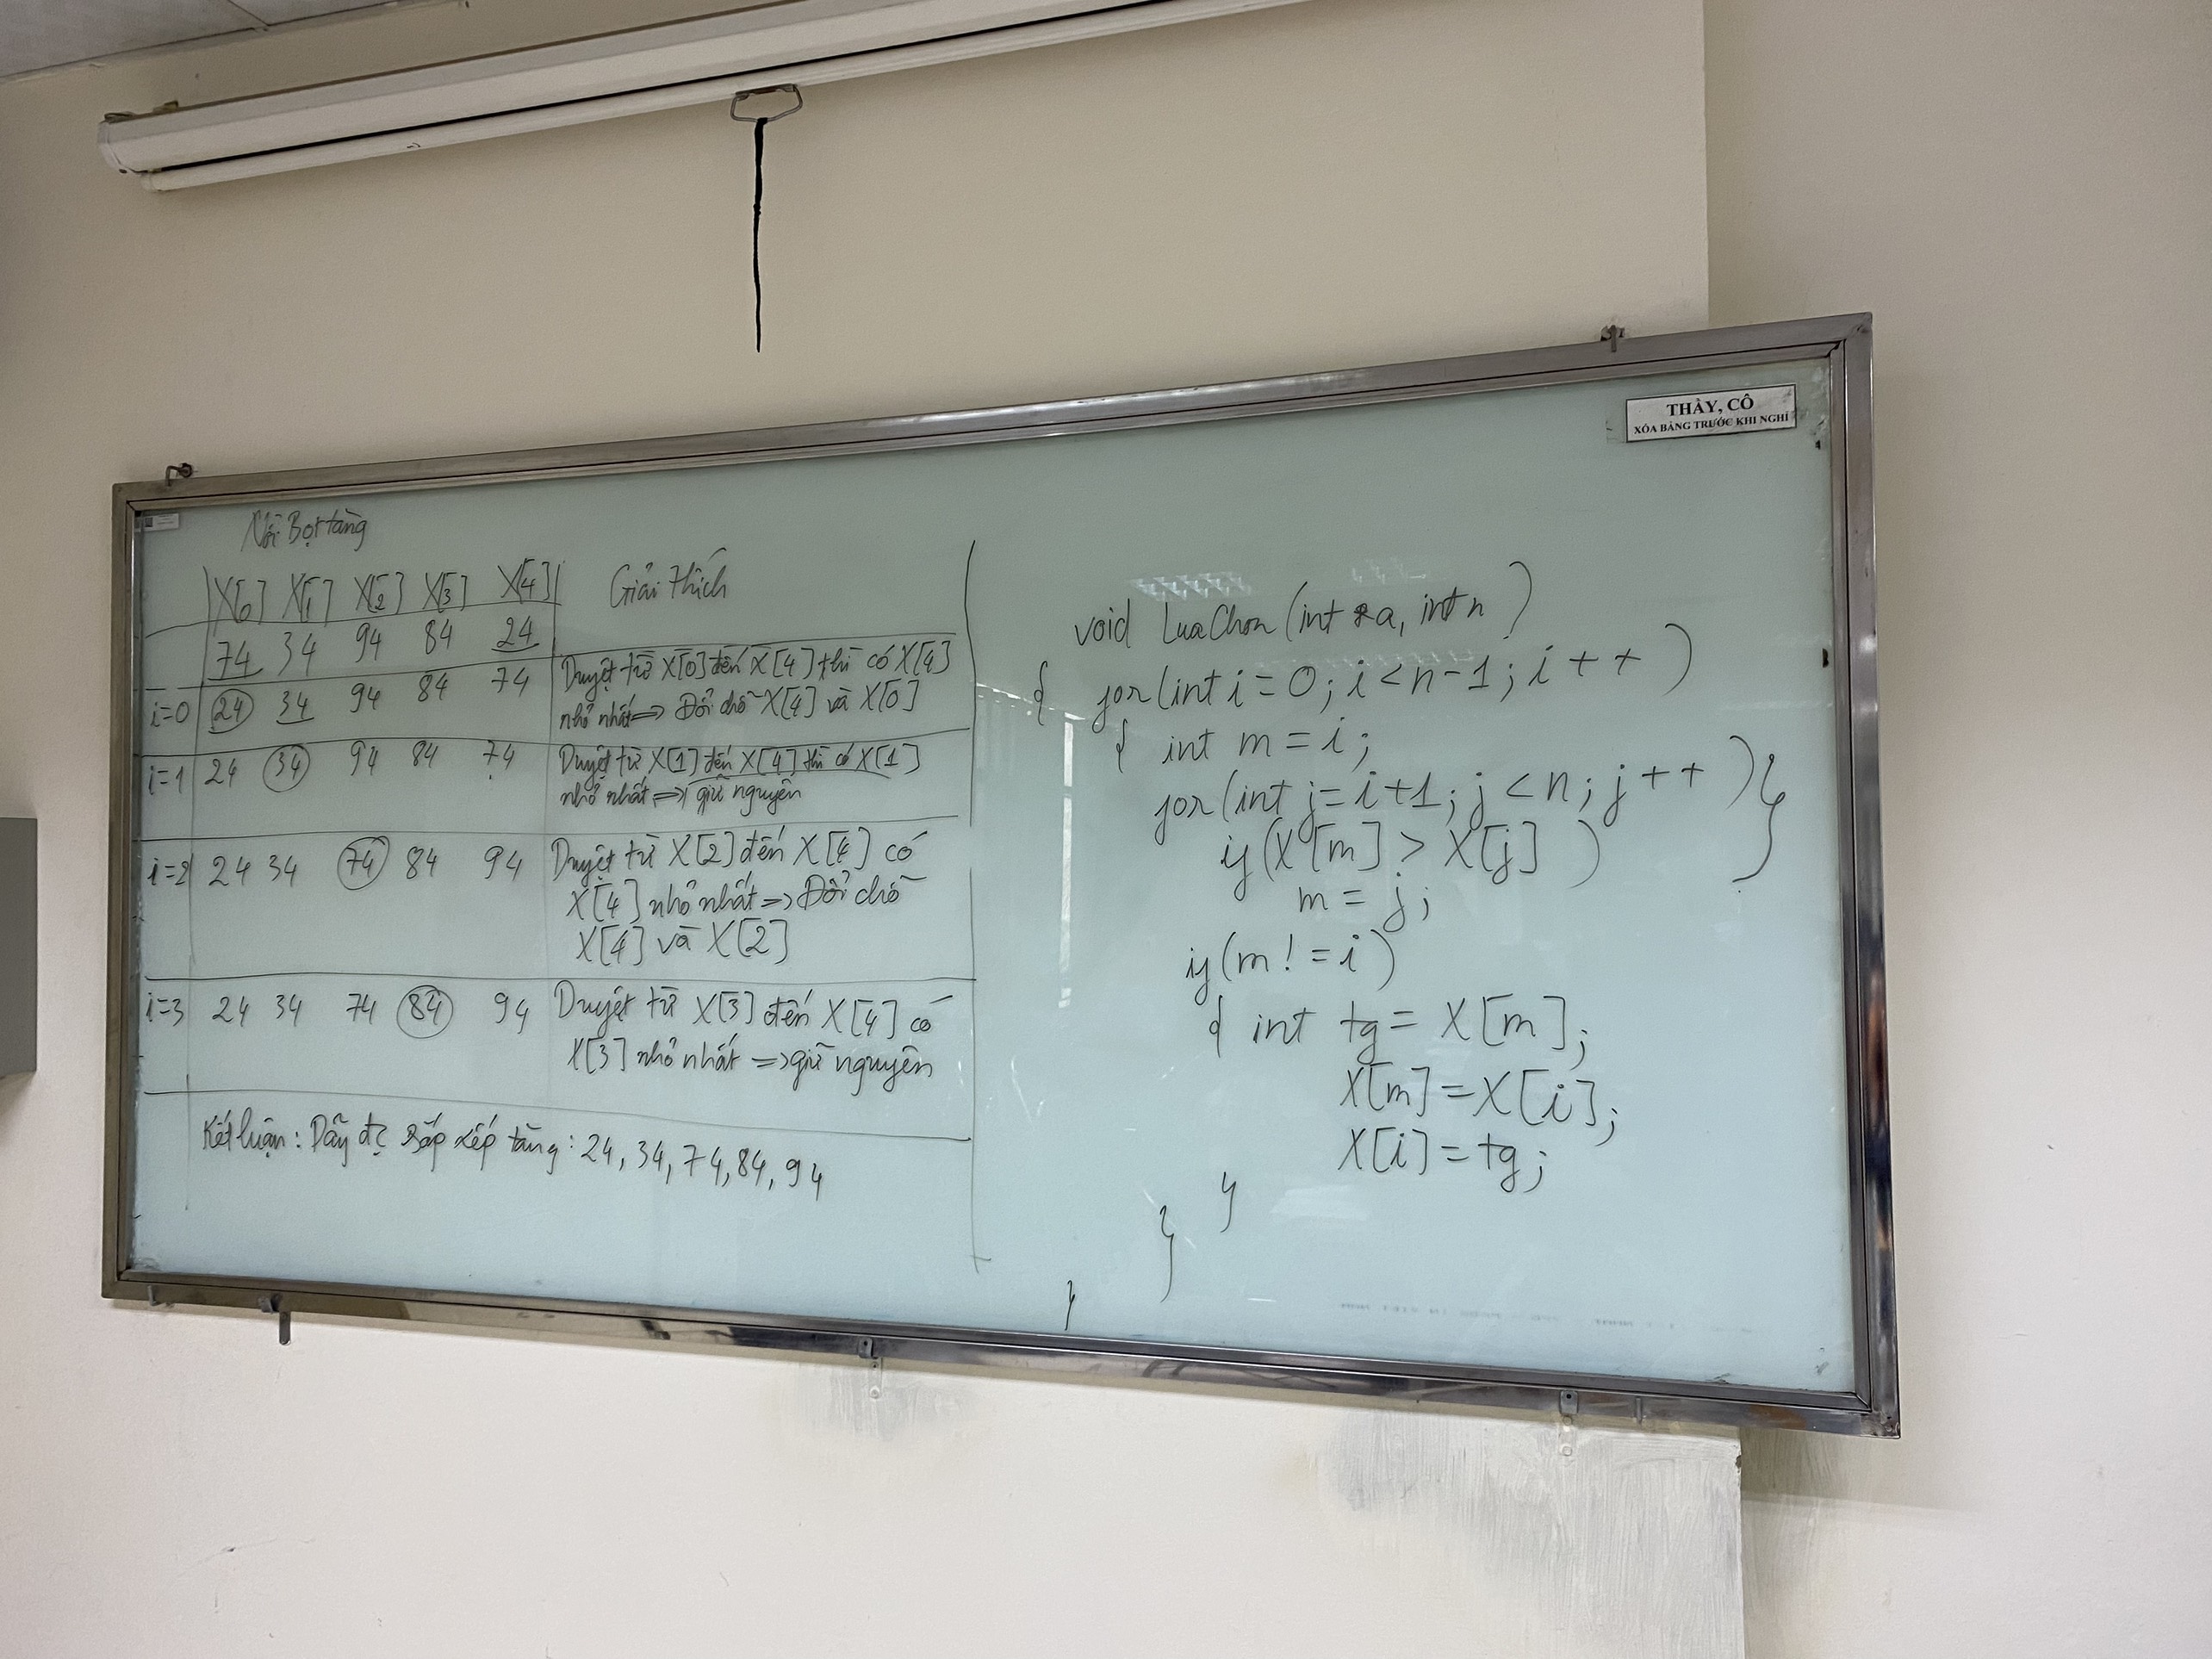 THẦY, CÔ
XÓA BẢNG TRƯỚC KHI NGHỈ
Nổi Bọt tăng
X[0] X[1] X[2] X[3] X[4] Giải thích
74 34 94 84 24
i=0 24 34 94 84 74 Duyệt từ X[0] đến X[4] thì có X[4]
nhỏ nhất => Đổi chỗ X[4] và X[0]
i=1 24 34 94 84 74 Duyệt từ X[1] đến X[4] thì có X[1]
nhỏ nhất => giữ nguyên
i=2 24 34 74 84 94 Duyệt từ X[2] đến X[4] có
X[4] nhỏ nhất => Đổi chỗ
X[4] và X[2]
i=3 24 34 74 84 94 Duyệt từ X[3] đến X[4] có
X[3] nhỏ nhất => giữ nguyên
Kết luận: Dãy đc sắp xếp tăng: 24, 34, 74, 84, 94
void LuaChon (int *a, int n)
{ for(int i=0; i<n-1; i++)
{ int m=i;
for(int j=i+1; j<n; j++){
if(X[m] > X[j])
m = j; }
if(m!=i)
{ int tg= X[m];
X[m]=X[i];
X[i]=tg;
}
}
}